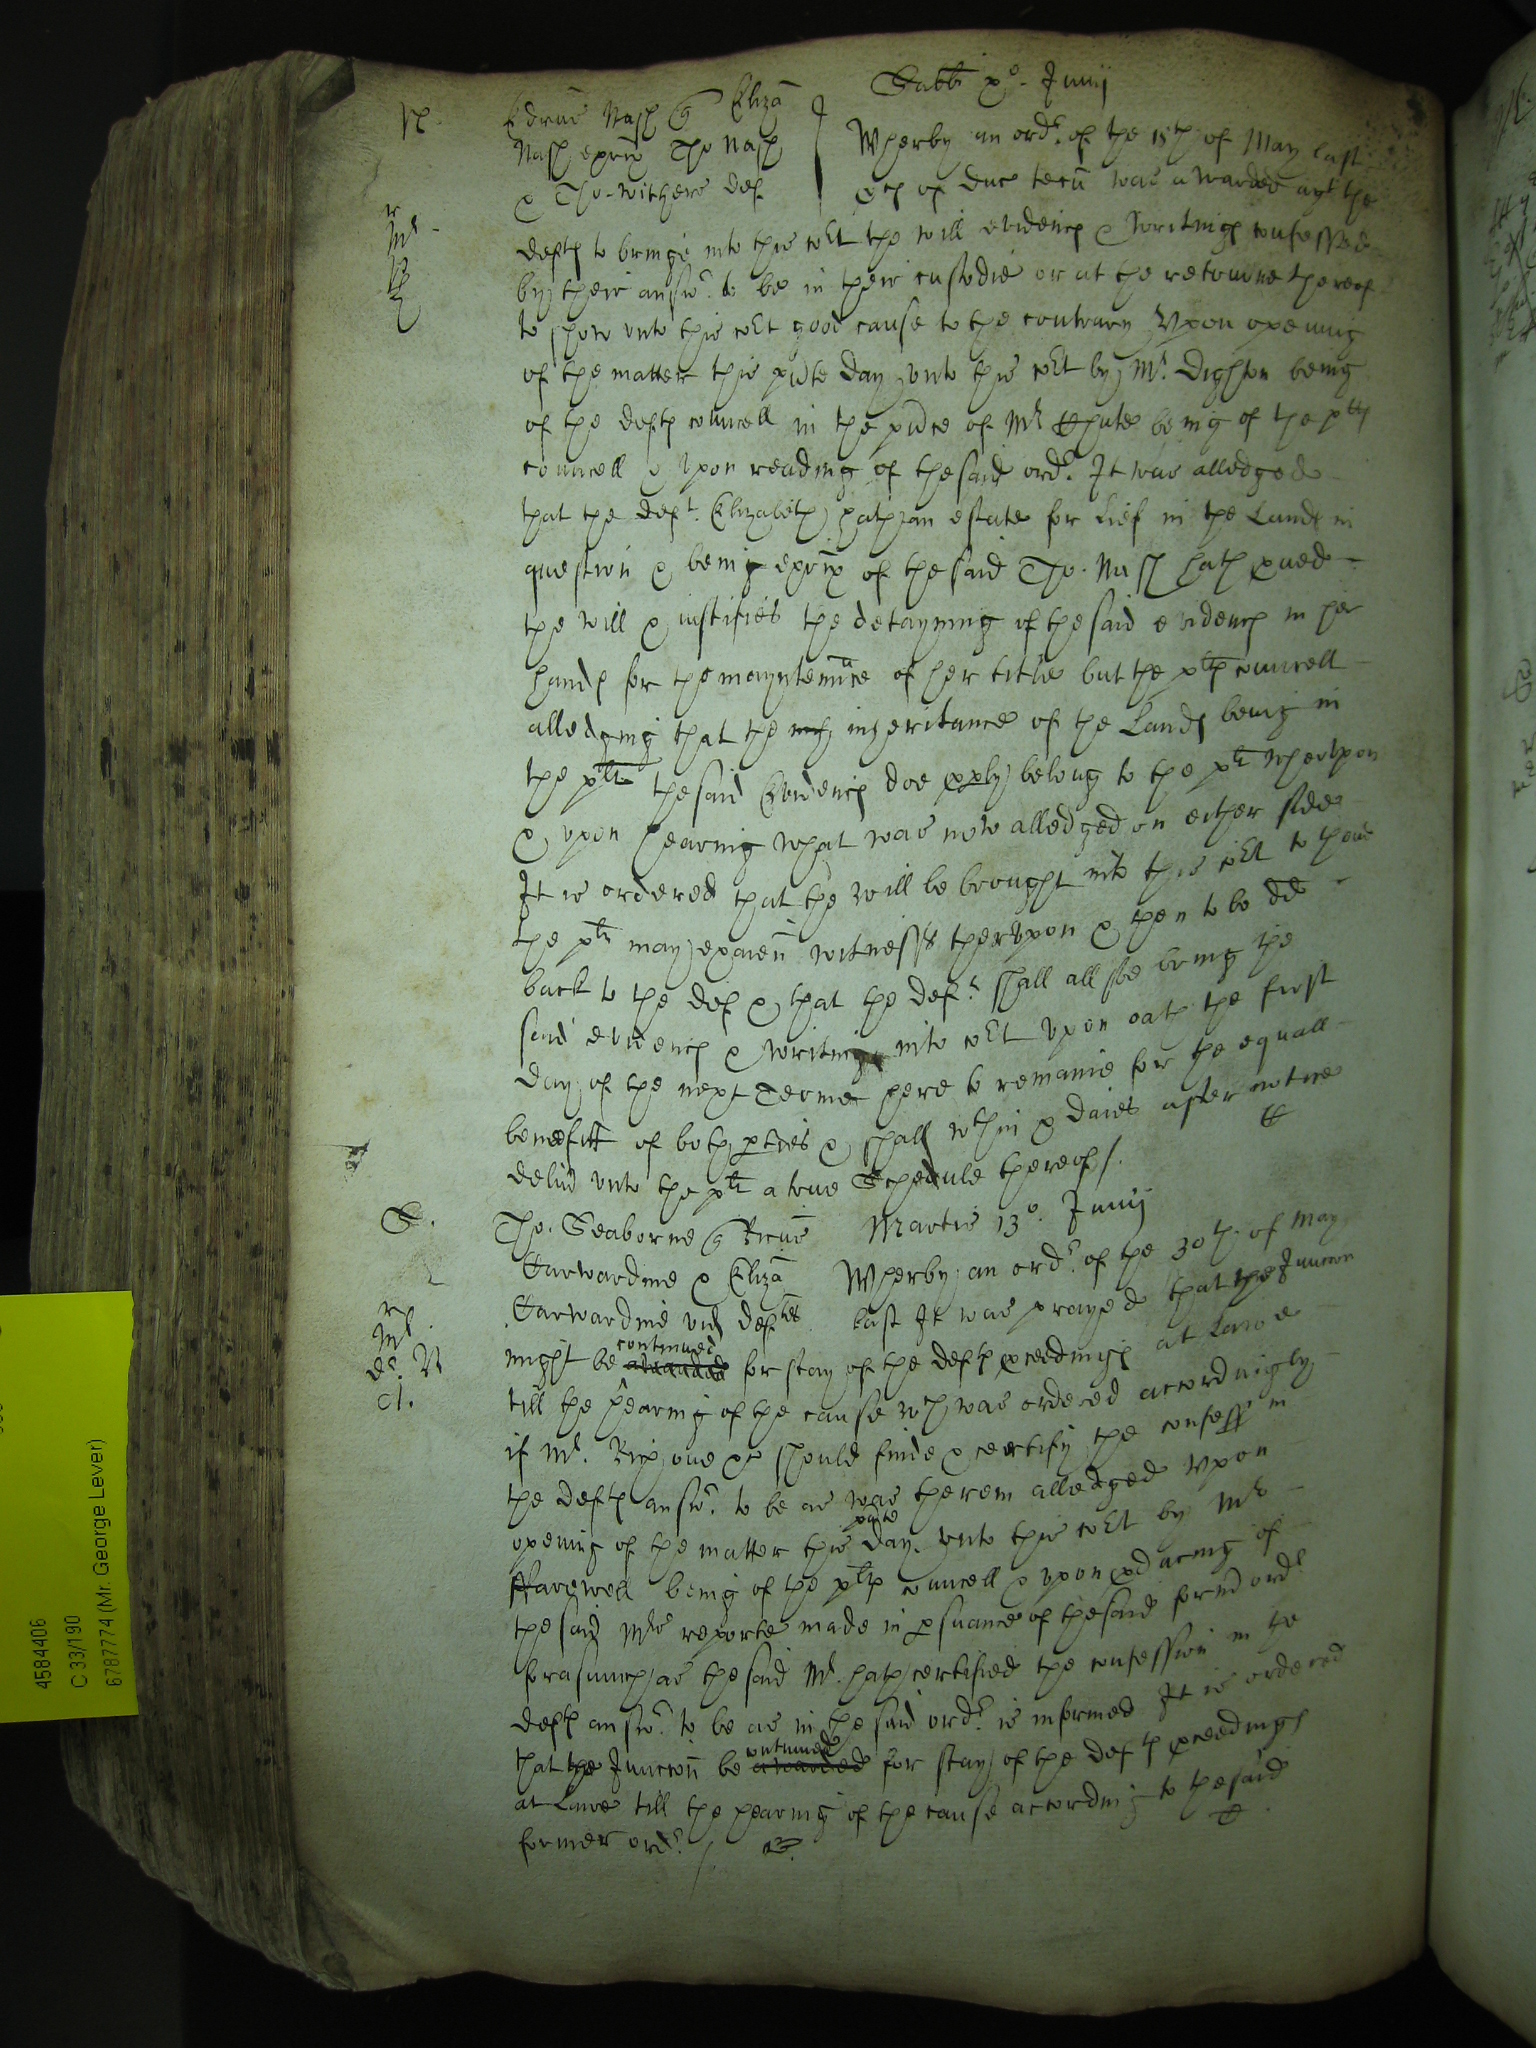 Sabbti xo. Junij
N. Edrus Nash qr Eliza
Nash exrix Tho Nash
& Tho. withers def
Wherby an ordr. of the 15th of May last
of duc tecu was awarded agt the
mr
deftes to bringe into this cort the will evidences & writings confessed
by their answr. to be in their custodie or at the retourne thereof
to shew unto this cort good cause to the contrary Vpon opening
of the matter this pnte day vnto this cort by Mr. Dighton being
of the deftes councell in the pnce of Mr Chute being of the pltes
councell & vpon reading of the said ordr. It was alledged
that the deft. Elizabeth hath an estate for lief in the Landes in
question & being exrix of the said Tho. Nash hath pued
the will & iustifies the detayning of the said evidences in her
handes for the mayntennce of her title but the pltes councell
alledging that the inheritance of the Landes being in
the plt the said Evidences doe pply belong to the plt Wherevpon
& vpon hearing what was now alledged on either side
It is ordered that the will be brought into this cort to thend
the plt may examen witnesses thervpon & then to be dd
back to the def & that the deft. shall allsoe bring the
said evidences & writings into cort vpon oath the first
day of the next Terme here to remaine for the equall
benefitt of both pties & shall wthin x daies after notice
deliu vnto the plt a true Schedule thereof /.
S. Tho. Seaborne qr Ricus
Carwardine & Eliza
Carwardine vid deftes
Martis 13o. Junij
Wherby an ordr. of the 30th. of May
last It was prayed that the Junccon
mr
might be awarded continued for stay of the deftes pceedinges at Lawe
till the hearing of the cause wch was ordered accordingly
if Mr. Rich one &c should finde & certify the confess in
the deftes answr. to be as was therein alledged Vpon
opening of the matter this pnte day vnto this cort by Mr
ffarewell being of the pltes councell & vpon pducing of
the said Mrs reporte made in psuance of the said formd ordr
forasmuch as the said Mr. hath certified the confession in the
deftes answr. to be as in the said ordr. is informed It is ordered
that the Junccon be awarded contined for stay of the deftes pceedinges
at Lawe till the hearing of the cause according to the said
former ordr. /
4584406
C 33/190
6787774 (Mr. George Lever)